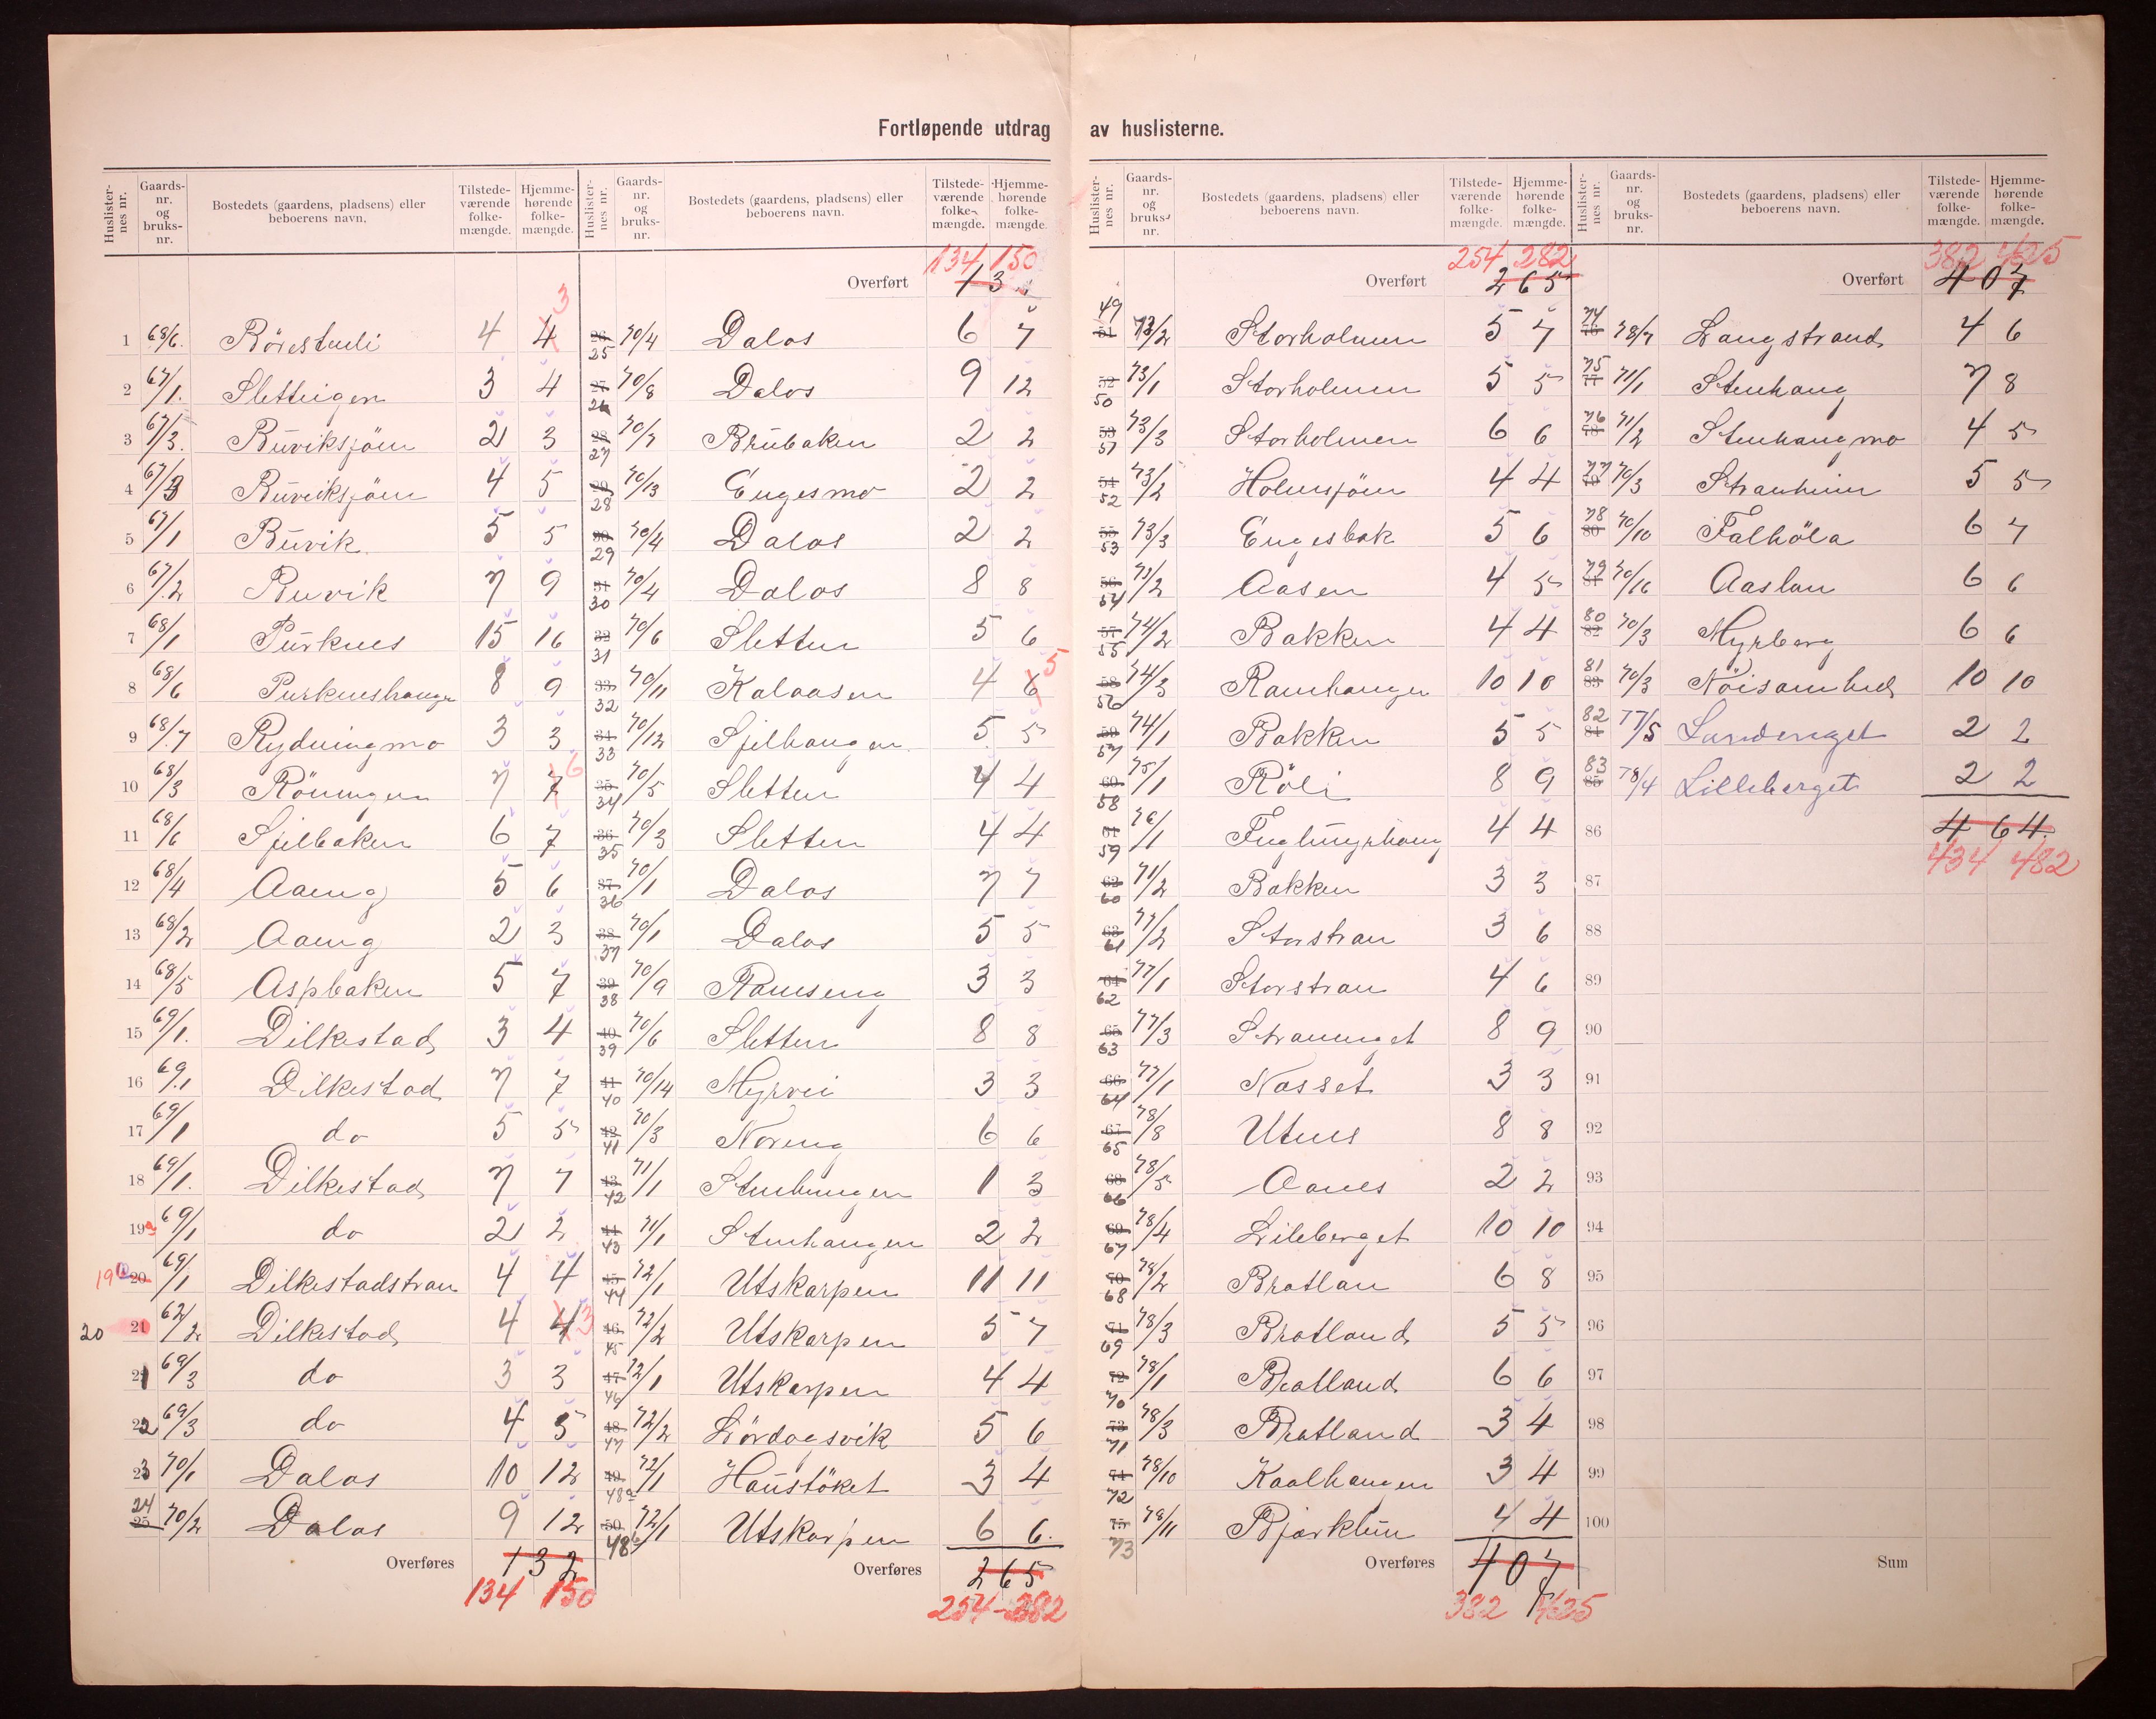 Fortløpende utdrag av huslisterne.
Huslisternes nr. Gaards-nr. og bruks-nr. Bostedets (gaardens, pladsens) eller beboerens navn. Tilstede-værende folke-mængde. Hjemme-hørende folke-mængde.
1 68/6. 4 4 3
2 67/1. 3 4
3 67/3. Buviksjöen 2 3
4 67/3 Buviksjöen 4 5
5 67/1 Buvik 5 5
6 67/2 Buvik 7 9
7 68/1 Purknes 15 16
8 68/6 Purkneshaugen 8 9
9 68/7 Rydningmo 3 3
10 68/3 Röningen 7 7 6
11 68/6 Sjelbaken 6 7
12 68/4 Aaeng 5 6
13 68/2 Aaeng 2 3
14 68/5 Aspbaken 5 7
15 69/1. Dilkestad 3 4
16 69/1 Dilkestad 7 7
17 69/1 do 5 5
18 69/1. Dilkestad 7 7
19 a 69/1 do 2 2
19 b 20 69/1 Dilkestadstran 4 4
20 21 62/2 Dilkestad 4 4 3
21 69/3 do 3 3
22 69/3 do 4 5
23 70/1 Dalos 10 12
24 25 70/2 Dalos 9 12
Overføres 132
134 150
Huslisternes nr. Gaards-nr. og bruks-nr. Bostedets (gaardens, pladsens) eller beboerens navn. Tilstede-værende folke-mængde. Hjemme-hørende folke-mængde.
134 150
Overført 132
26 25 70/4 Dalos 6 7
27 26 70/8 Dalos 9 12
28 27 70/7 Brubaken 2 2
29 28 70/13 Engesmo 2 2
30 29 70/4 Dalos 2 2
31 30 70/4 Dalos 8 8
32 31 70/6 Sletten 5 6
33 32 70/11 Kalaasen 4 6 5
34 33 70/12 Sjelhaugen 5 5
35 34 70/5 Sletten 4 4
36 35 70/3 Sletten 4 4
37 36 70/1 Dalos 7 7
38 37 70/1 Dalos 5 5
39 38 70/9 Ramseng 3 3
40 39 70/6 Sletten 8 8
41 40 70/14 Myrvei 3 3
42 41 70/3 Noreng 6 6
43 42 71/1 Stenhaugen 1 3
44 43 71/1 Stenhaugen 2 2
45 44 72/1 Utskarpen 11 11
46 45 72/2 Utskarpen 5 7
47 46 72/1 Utskarpen 4 4
48 47 72/2 Lördagsvik 5 6
49 48a 72/1 Haustöket 3 4
50 48b 72/1 Utskarpen 6 6.
Overføres 265
254 - 282
Huslisternes nr. Gaards-nr. og bruks-nr. Bostedets (gaardens, pladsens) eller beboerens navn. Tilstede-værende folke-mængde. Hjemme-hørende folke-mængde.
254 282
Overført 265
49 51 73/2 Storholmen 5 7
52 50 73/1 Storholmen 5 5
53 51 73/3 Storholmen 6 6
54 52 73/2 Holmsjöen 4 4
55 53 73/3 Engesbak 5 6
56 54 71/2 Aasen 4 5
57 55 74/2 Bakken 4 4
58 56 74/3 Ramhaugen 10 10
59 57 74/1 Bakken 5 5
60 58 75/1 Röli 8 9
61 59 76/1 Fuglmyrhaug 4 4
62 60 71/2 Bakken 3 3
63 61 77/2 Storstran 3 6
64 62 77/1 Storstran 4 6
65 63 77/3 Stranenget 8 9
66 64 77/1 Nasset 3 3
67 65 78/8 Utnes 8 8
68 66 78/5 Aanes 2 2
69 67 78/4 Lileberget 10 10
70 68 78/2 Bratlan 6 8
71 69 78/3 Bratland 5 5
72 70 78/1 Bratland 6 6
73 71 78/3 Bratland 3 4
74 72 78/10 Kaalhaugen 3 4
75 73 78/11 Bjørklun 4 4
Overføres 407
382 425
Huslisternes nr. Gaards-nr. og bruks-nr. Bostedets (gaardens, pladsens) eller beboerens navn. Tilstede-værende folke-mængde. Hjemme-hørende folke-mængde.
382 425
Overført 407
74 76 78/7 Langstrand 4 6
75 77 71/1 Stenhaug 7 8
76 78 71/2 Stenhaugmo 4 5
77 79 70/3 Stranheim 5 5
78 80 70/10 Falhöla 6 7
79 81 70/16 Aaslan 6 6
80 82 70/3 Myrberg 6 6
81 83 70/3 Nöisomhed 10 10
82 84 77/5 2 2
83 85 78/4 Lilleberget 2 2
86 464.
434 482
87
88
89
90
91
92
93
94
95
96
97
98
99
100
Sum